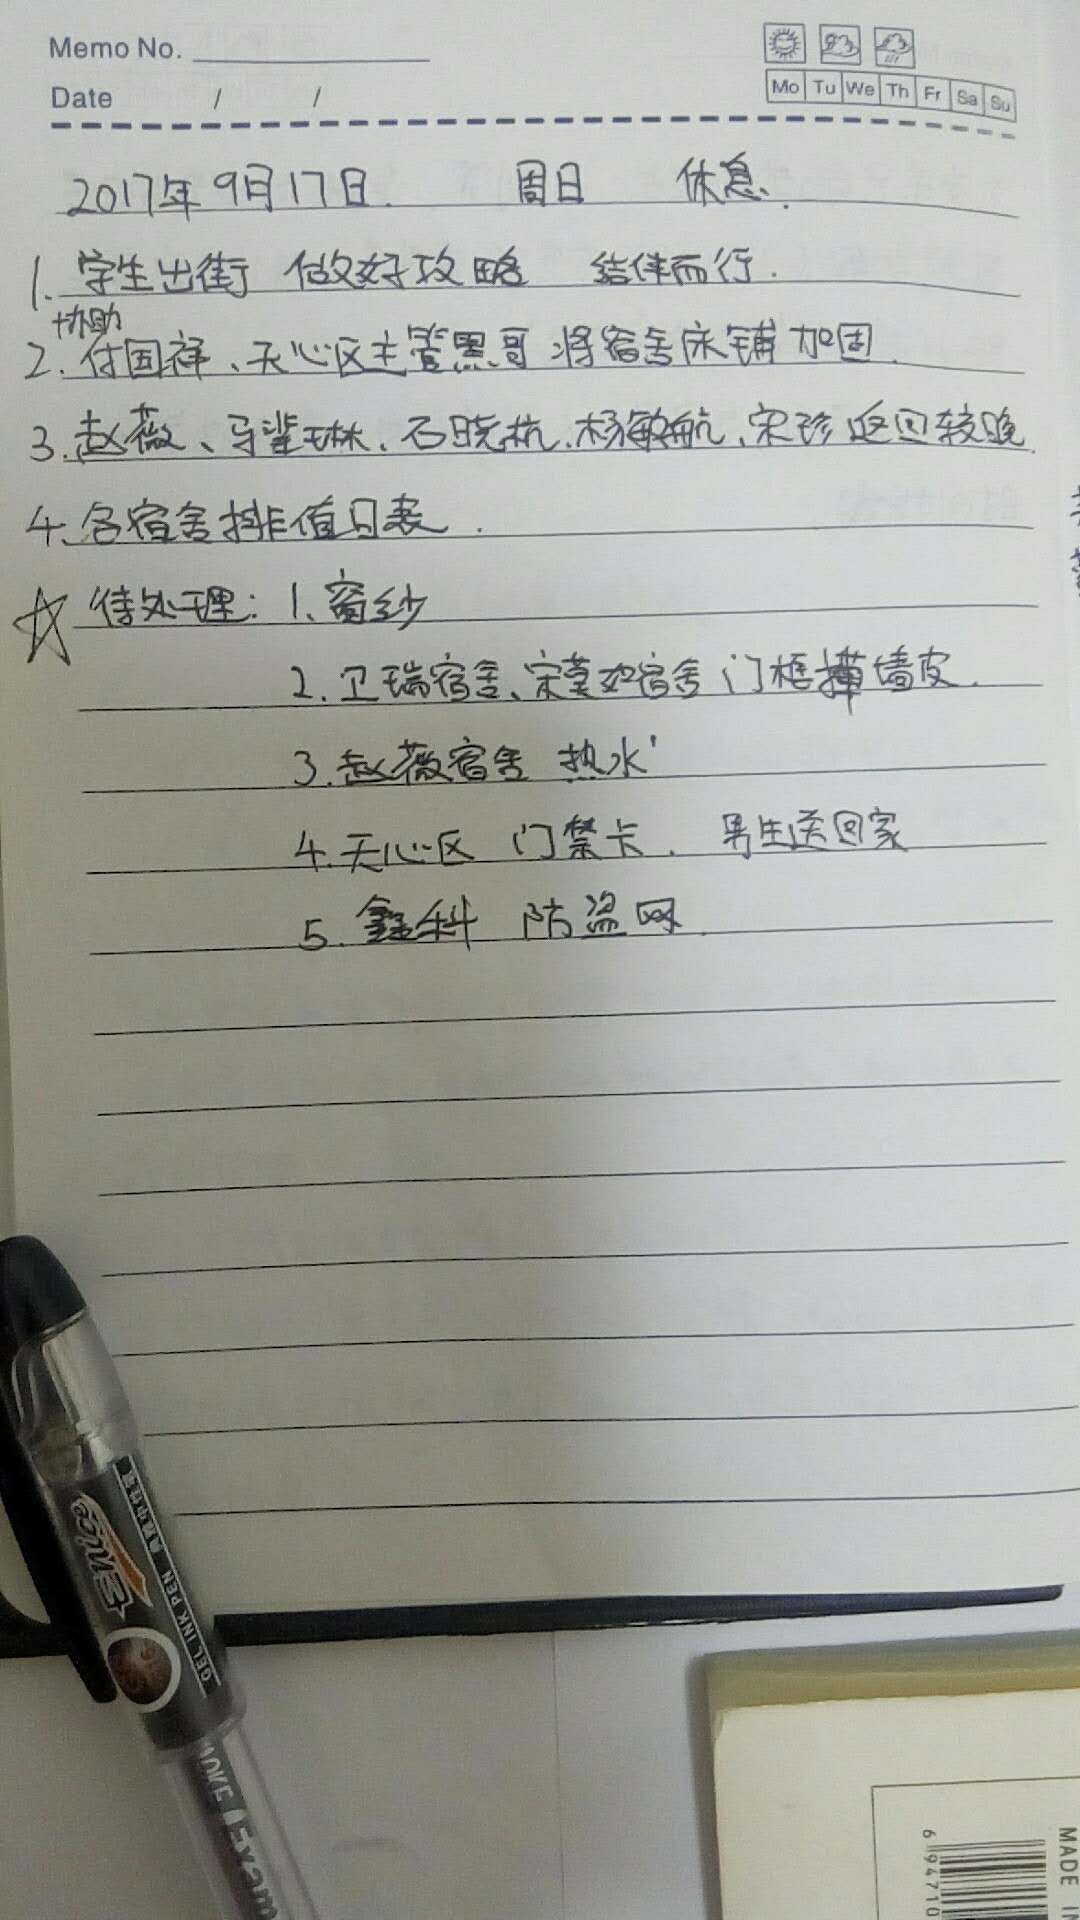 Memo No.
Date / /
Mo Tu We Th Fr Sa Su
2017年9月17日. 周日 休息.
1. 学生出街 做好攻略 结伴而行.
协助
2. 付国祥、天心区主管黑哥 将宿舍床铺加固.
3. 赵薇、马 琳、石晓杭、杨敏航、宋珍返回较晚.
4. 各宿舍排值日表.
☆ 待处理: 1. 窗纱
2. 卫瑞宿舍、宋莫如宿舍 门框掉墙皮.
3. 赵薇宿舍 热水
4. 天心区 门禁卡. 男生送回家
5. 鑫科 防盗网.
Enice
GEL INK PEN
MADE IN
6 94710